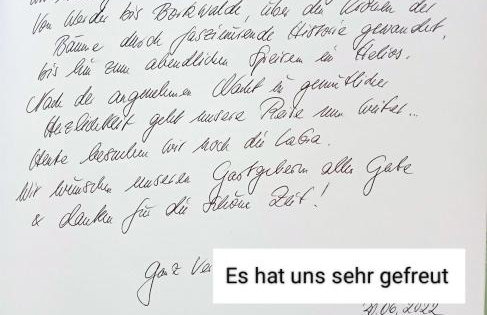 Von Werder bis Borkwalde, über die Kronen der
Bäume durch faszinierende Historie gewandert,
bis hin zum abendlichen Speisen im Helios.
Nach der angenehmen Nacht in gemütlicher
Herzlichkeit geht unsere Reise nun weiter...
Heute besuchen wir noch die LaGa.
Wir wünschen unseren Gastgebern alles Gute
& danken für die schöne Zeit!
Ganz
Es hat uns sehr gefreut
.06.2022